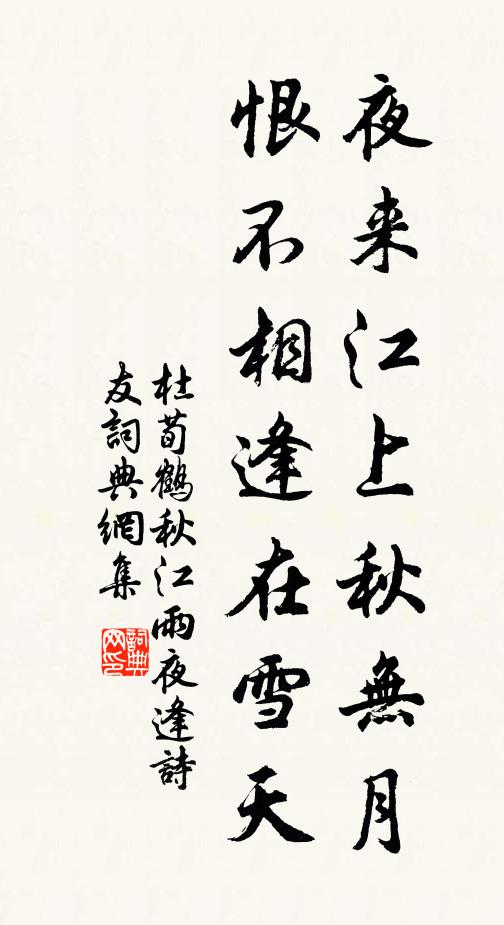 夜来江上秋無月
恨不相逢在雪天
杜荀鶴秋江雨夜逢詩
友詞典網集
詞典网印